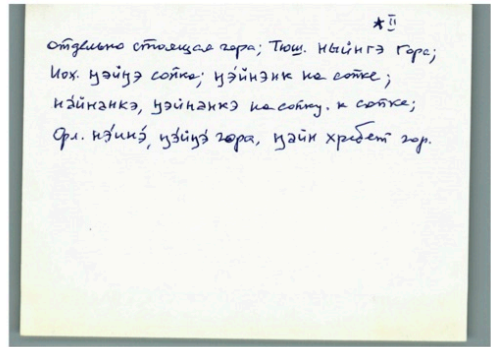 * II
отдельно стоящая гора; Тюш. ныйнгэ гора;
Иох. ӈэйӈэ сопка; ӈэ́йнэнк на сопке;
нэ́йнанкэ, ӈэйнанкэ на сопку. к сопке;
Фл. нэ́инэ́, ӈэ́йӈэ́ гора, ӈайн хребет гор.